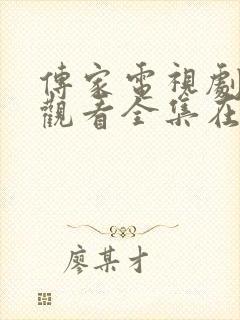 傳家電視劇
觀看全集在
廖某才